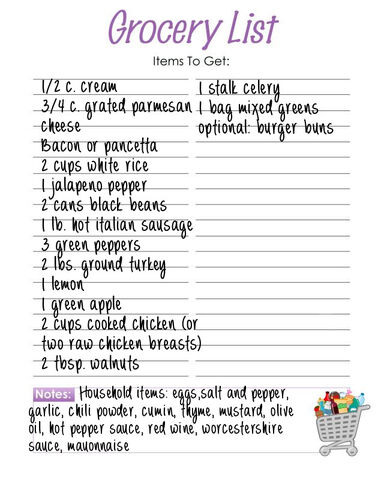 Grocery List
Items To Get:
1/2 c. cream
3/4 c. grated parmesan
cheese
Bacon or pancetta
2 cups white rice
1 jalapeno pepper
2 cans black beans
1 lb. hot italian sausage
3 green peppers
2 lbs. ground turkey
1 lemon
1 green apple
2 cups cooked chicken (or
two raw chicken breasts)
2 tbsp. walnuts
1 stalk celery
1 bag mixed greens
optional: burger buns
Notes: Household items: eggs,salt and pepper,
garlic, chili powder, cumin, thyme, mustard, olive
oil, hot pepper sauce, red wine, worcestershire
sauce, mayonnaise